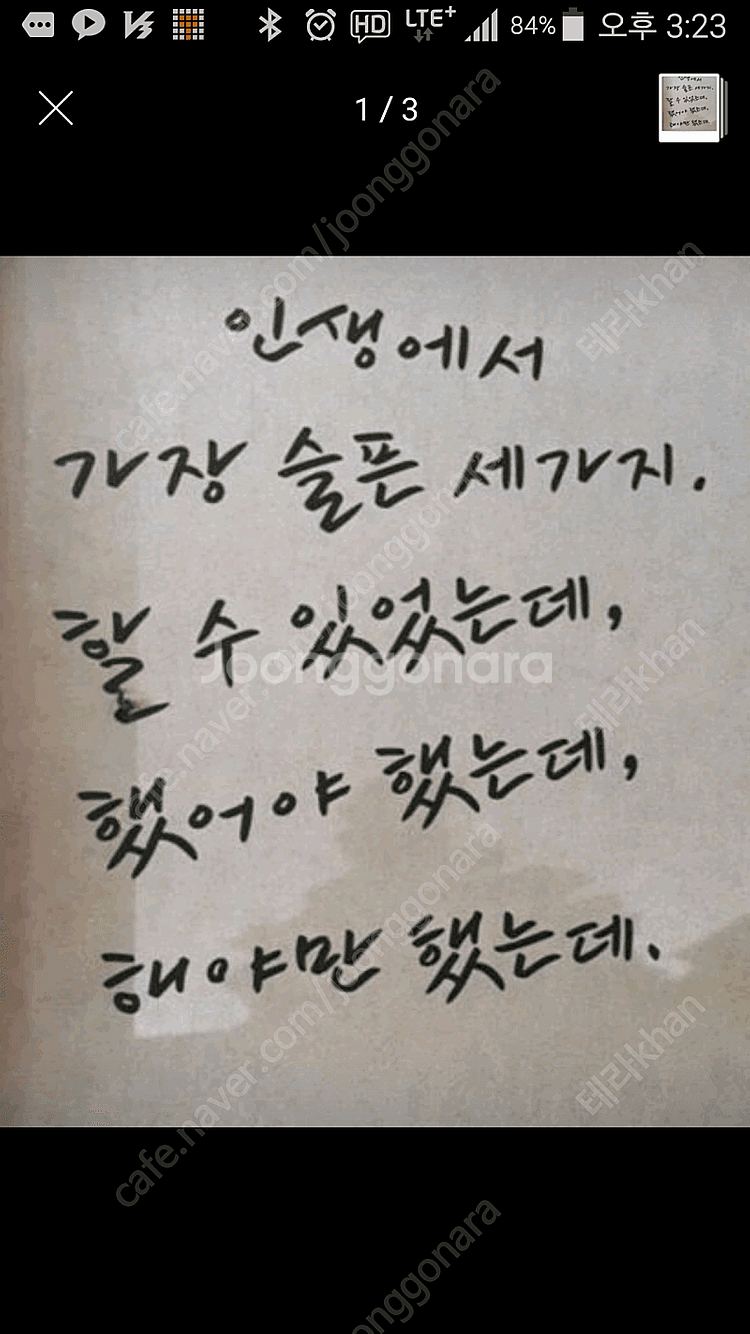 84% 오후 3:23
LTE+
HD
1 / 3
인생에서
가장 슬픈 세가지.
할 수 있었는데,
했어야 했는데,
해야만 했는데.
Joonggonara
cafe.naver.com/joonggonara
cafe.naver.com/joonggonara
joonggonara
테리khan
테리khan
테리khan